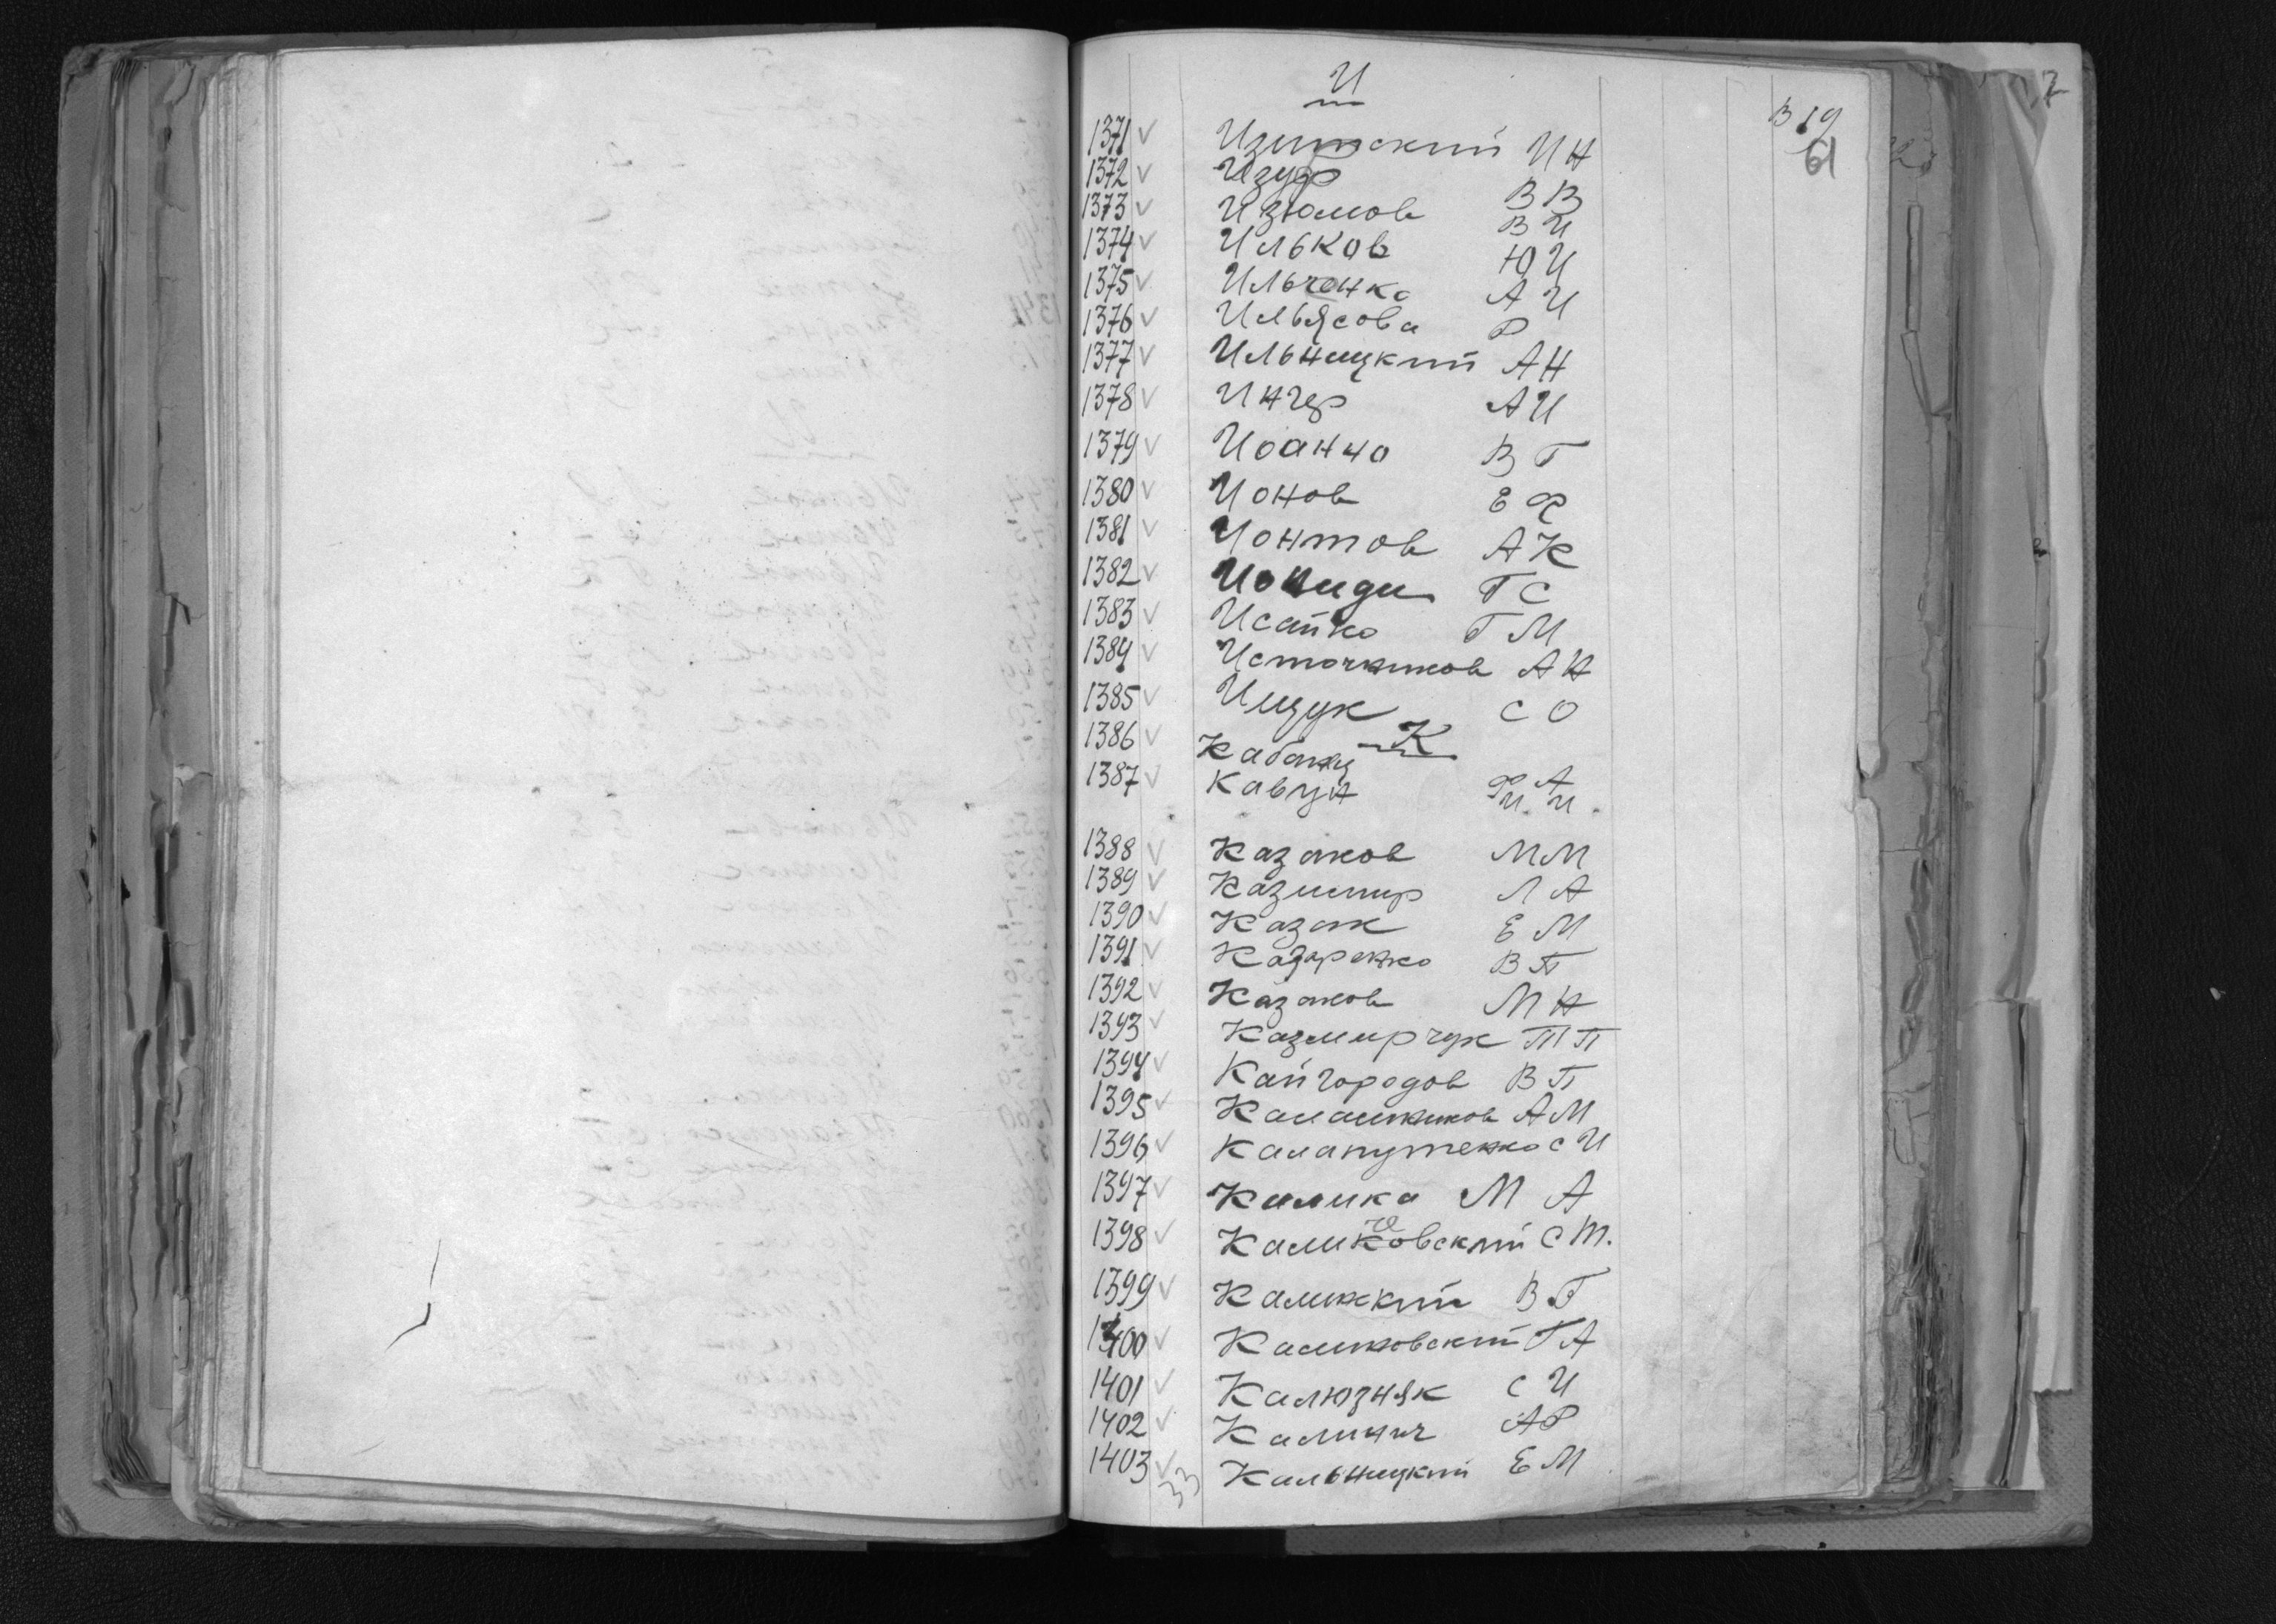 И
В 19
61
1371 v Изитский И Н
1372 v Изуф В В
1373 v Изюмов В И
1374 v Ильков Ю И
1375 v Ильченко А И
1376 v Ильясова Р
1377 v Ильницкий А Н
1378 v Ингер А И
1379 v Иоанно В Г
1380 v Ионов Е Ф
1381 v Ионтов А К
1382 v Ионидис Г С
1383 v Исайко Г М
1384 v Источников А Н
1385 v Ищук С О
К
1386 v Кабанец Ф А
1387 v Кавун И. И.
1388 v Казаков М М
1389 v Казимир Л А
1390 v Казак Е М
1391 v Казаренко В П
1392 v Казаков М Н
1393 v Казмирчук Т П
1394 v Кайгородов В П
1395 v Калашников А М
1396 v Калапутенко С И
1397 v Калика М А
1398 v Калиновский С Т.
1399 v Калинский В Г
1400 v Калиновский Г А
1401 v Калюзняк С И
1402 v Калинич А Р
1403 v Кальницкий Е М
33